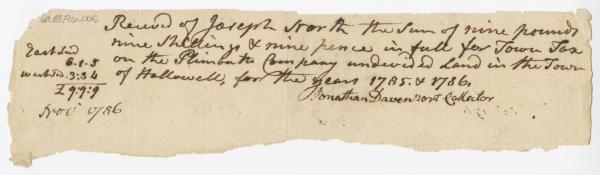 Receivd of Joseph North the Sum of nine pounds
nine Shillings & nine pence in full for Town Tax
on the Plimouth Company undevided Land in the Town
of Hallowell, for the years 1785 & 1786.
Jonathan Davenport Collector
East Sid
6.1.5
West Sd. 3:8:4
£9:9:9
Novr 1786